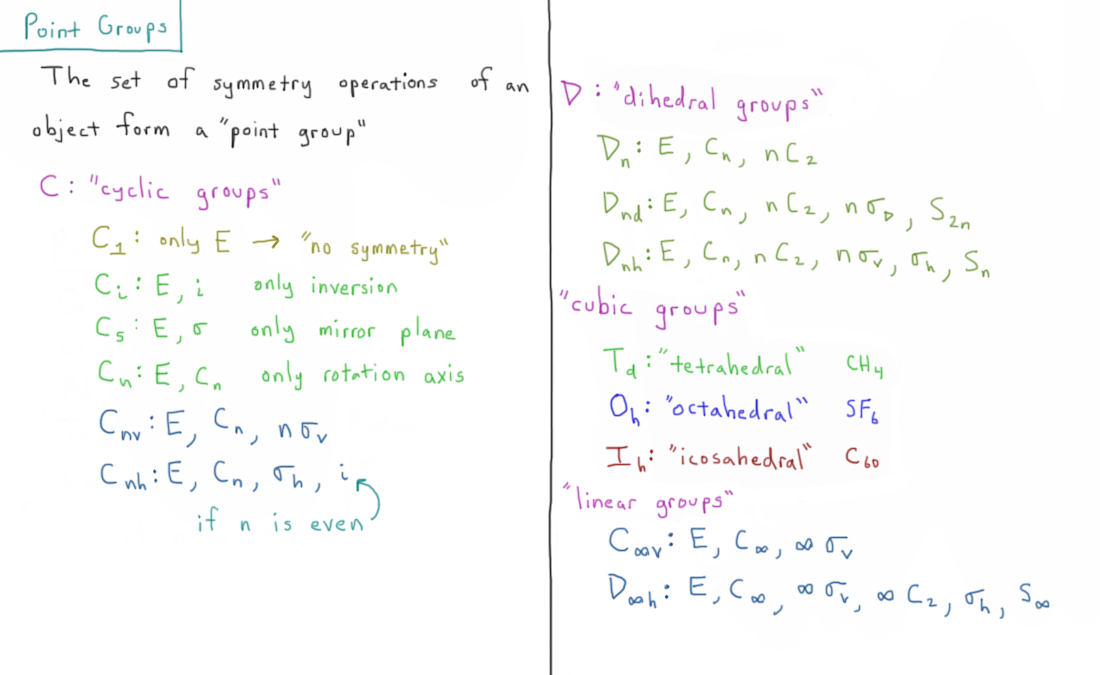 Point Groups
The set of symmetry operations of an
object form a "point group"
C: "cyclic groups"
C₁: only E → "no symmetry"
Cᵢ: E, i only inversion
Cₛ: E, σ only mirror plane
Cₙ: E, Cₙ only rotation axis
Cₙᵥ: E, Cₙ, nσᵥ
Cₙₕ: E, Cₙ, σₕ, i
if n is even
D: "dihedral groups"
Dₙ: E, Cₙ, nC₂
D_nd: E, Cₙ, nC₂, nσ_D, S₂ₙ
Dₙₕ: E, Cₙ, nC₂, nσᵥ, σₕ, Sₙ
"cubic groups"
T_d: "tetrahedral" CH₄
Oₕ: "octahedral" SF₆
Iₕ: "icosahedral" C₆₀
"linear groups"
C_∞v: E, C_∞, ∞σᵥ
D_∞h: E, C_∞, ∞σᵥ, ∞C₂, σₕ, S_∞